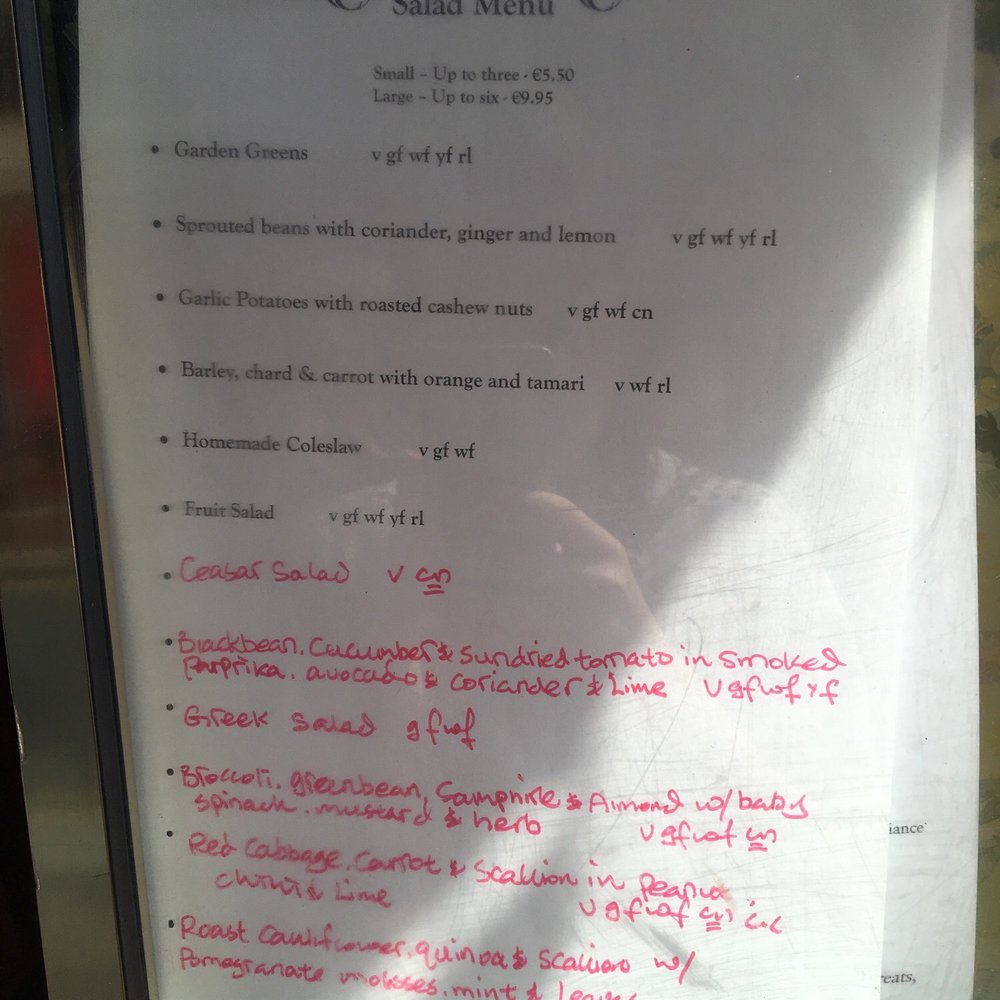 Salad Menu
Small – Up to three - €5.50
Large – Up to six - €9.95
• Garden Greens v gf wf yf rl
• Sprouted beans with coriander, ginger and lemon v gf wf yf rl
• Garlic Potatoes with roasted cashew nuts v gf wf cn
• Barley, chard & carrot with orange and tamari v wf rl
• Homemade Coleslaw v gf wf
• Fruit Salad v gf wf yf rl
• Ceasar Salad v cn
• Blackbean, Cucumber & Sundried tomato in Smoked
Parprika, avocado & Coriander & Lime v gf wf yf
• Greek Salad gf wf
• Broccoli, greenbean, Samphire & Almond w/ baby
spinach, mustard & herb v gf wf cn
• Red Cabbage, Carrot & Scallion in Peanut
chilli & Lime v gf wf cn
• Roast Cauliflower, quinoa & Scallion w/
Pomegranate molasses, mint &
iance'
eats,